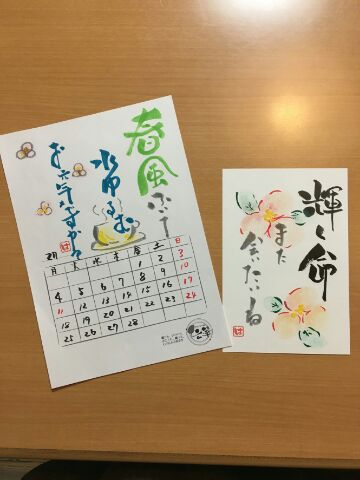 春風ふけ
水ゆるむ
お元気ですか
2月
月 火 水 木 金 土 日
1 2 3
4 5 6 7 8 9 10
11 12 13 14 15 16 17
18 19 20 21 22 23 24
25 26 27 28
輝く命
また
会いたいね